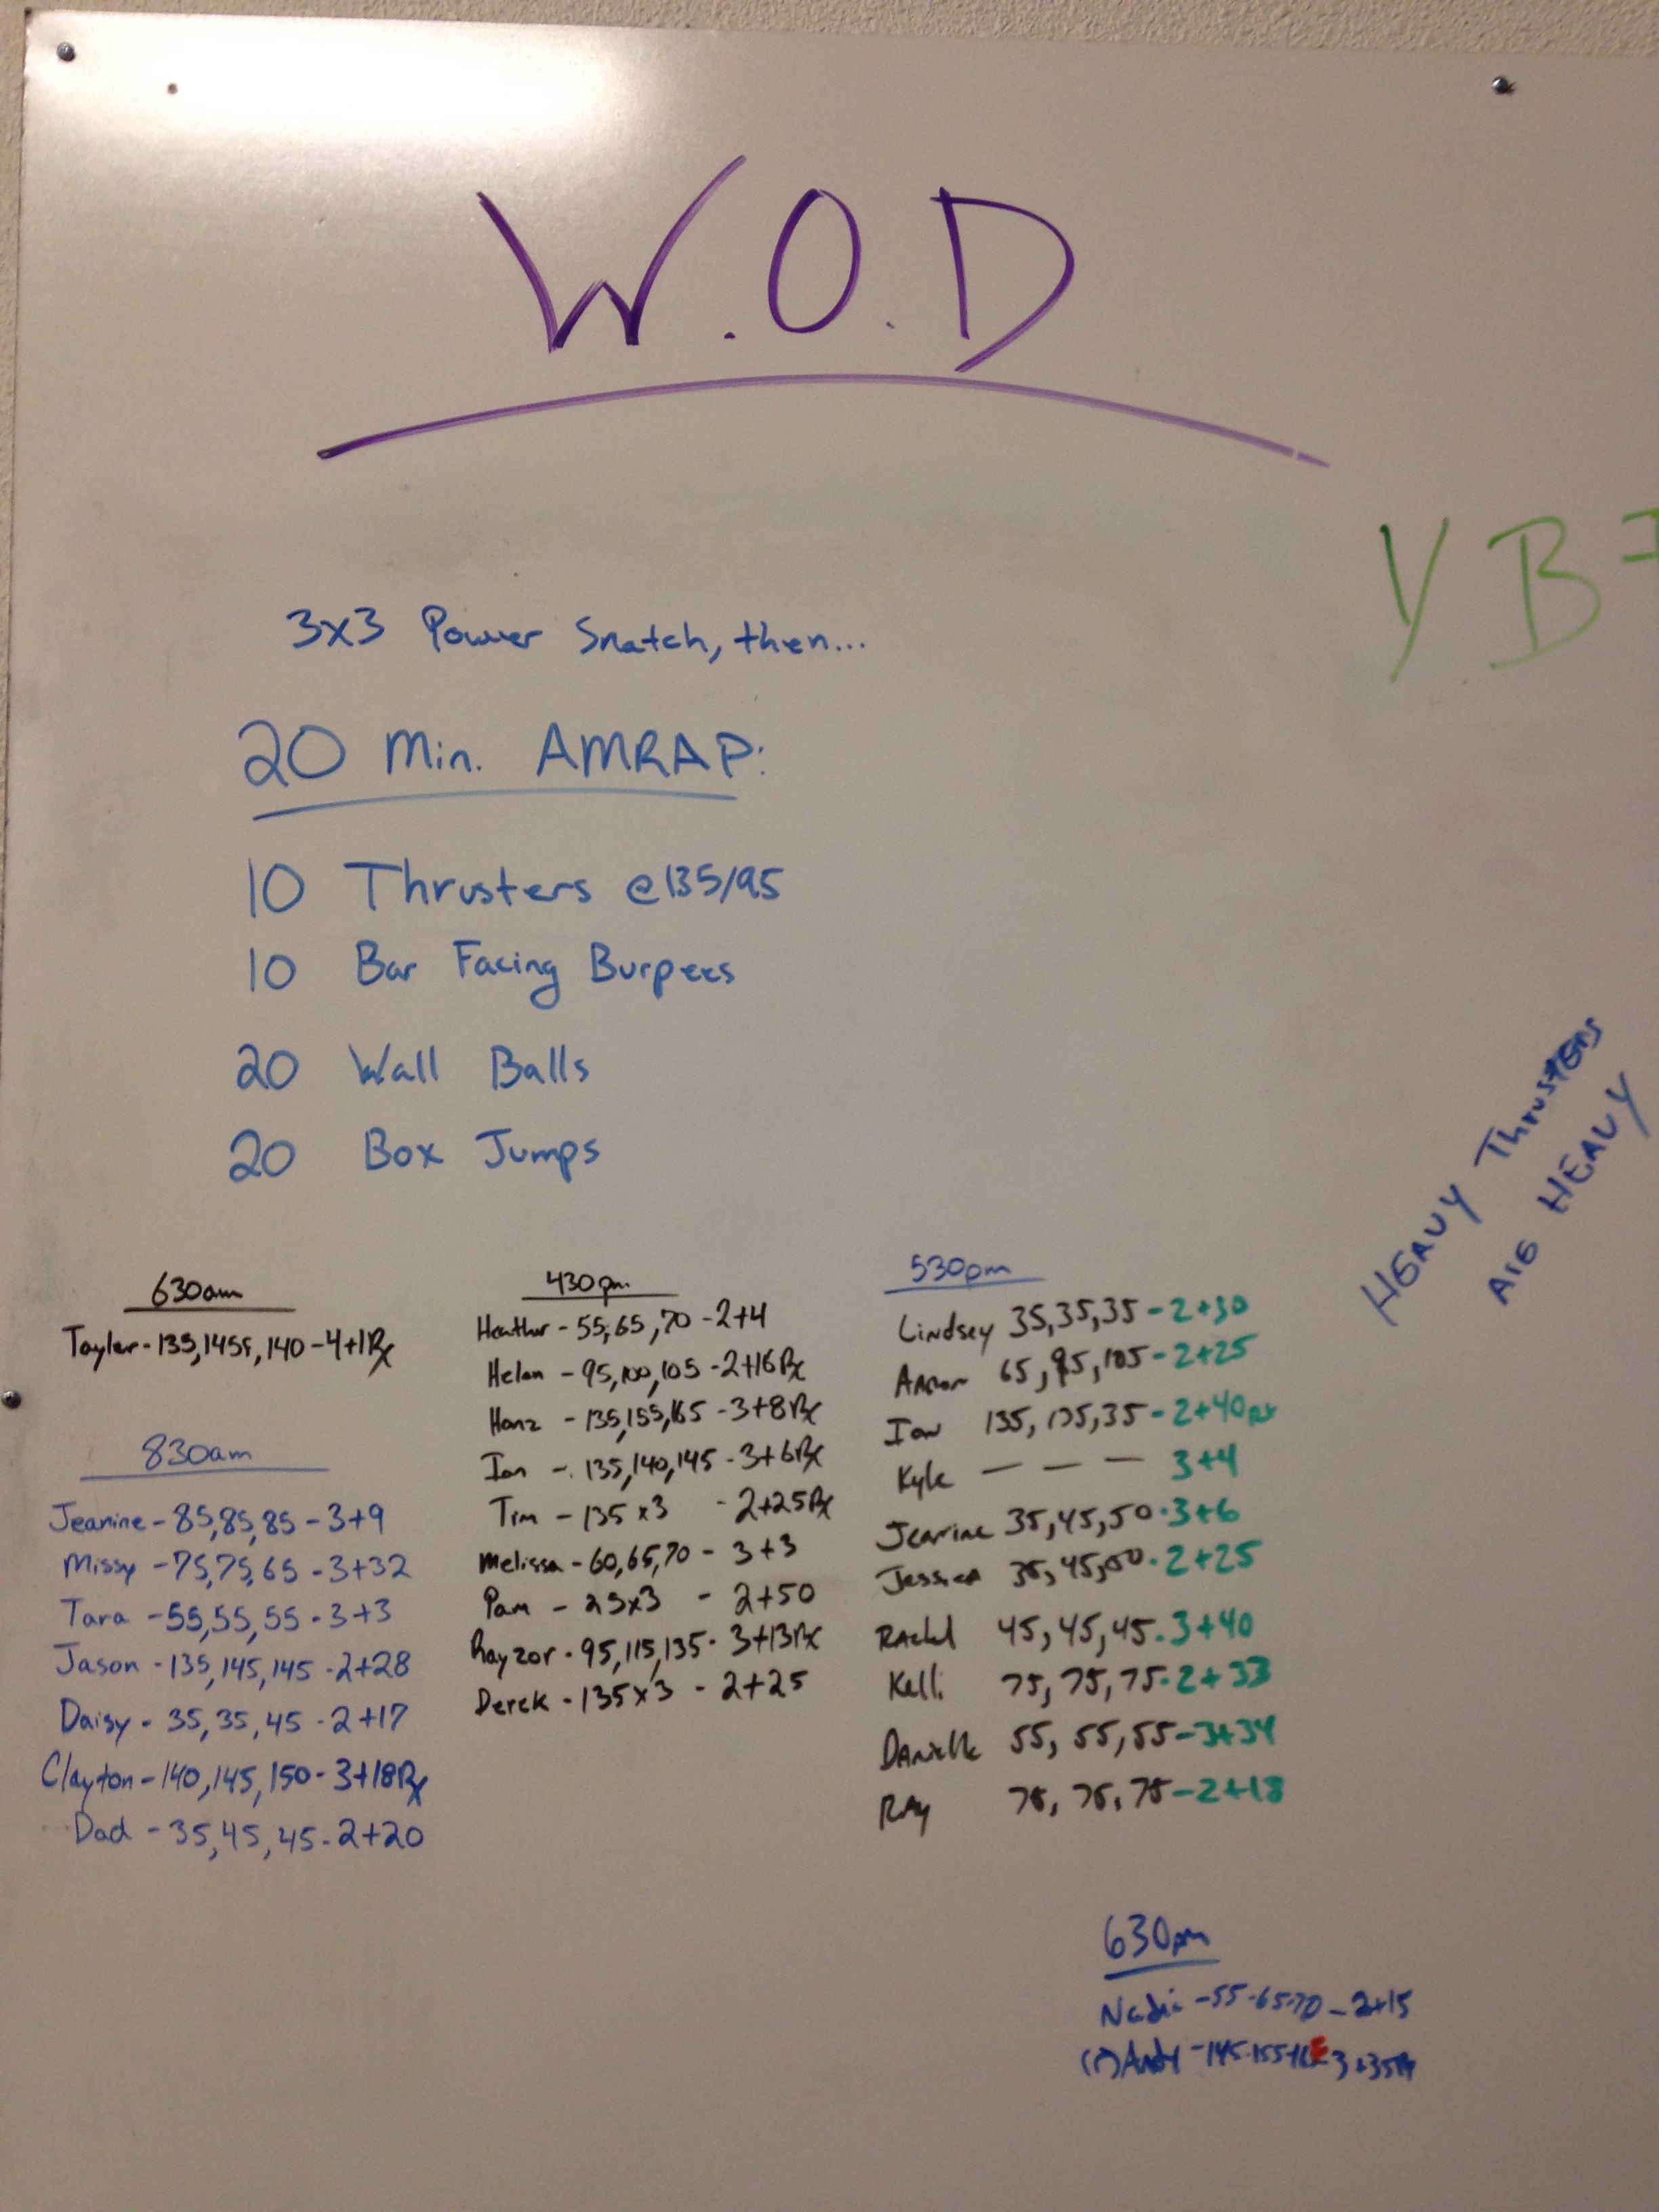 W.O.D
YB
3x3 Power Snatch, then...
20 Min. AMRAP:
10 Thrusters @135/95
10 Bar Facing Burpees
20 Wall Balls
20 Box Jumps
HEAVY Thrusters
Are HEAVY
630am
Taylor-135,145f,140-4+1Rx
830am
Jeanine-85,85,85-3+9
Missy-75,75,65-3+32
Tara-55,55,55-3+3
Jason-135,145,145-2+28
Daisy-35,35,45-2+17
Clayton-140,145,150-3+18Rx
Dad-35,45,45-2+20
430pm
Heather-55,65,70-2+4
Helen-95,100,105-2+16Rx
Hanz-135,155,165-3+8Rx
Ian-135,140,145-3+6Rx
Tim-135x3-2+25Rx
Melissa-60,65,70-3+3
Pam-25x3-2+50
Rayzor-95,115,135-3+13Rx
Derek-135x3-2+25
530pm
Lindsey 35,35,35-2+30
65,95,105-2+25
Ian 135, 135,35-2+40Rx
Kyle — — — 3+4
Jeanine 35,45,50-3+6
Jessica 35,45,50-2+25
Rachel 45,45,45-3+40
Kelli 75,75,75-2+33
Danielle 55,55,55-3+34
RAy 75,75,75-2+18
630pm
Nadia-55-65-70-2+15
Andy-145-155-3+35Rx